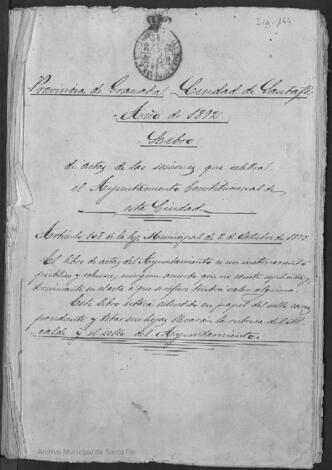 Sig. 164
Provincia de Granada Ciudad de Santafé
Año de 1892.
Libro
de actas de las sesiones que celebra
el Ayuntamiento Constitucional de
esta Ciudad
Artículo 107 de la ley Municipal de 2 de Octubre de 1877
El libro de actas del Ayuntamiento es un instrumento
público y solemne, ningún acuerdo que no conste explícita y
terminantemente en el acta a que se refiera tendrá valor alguno.
Este libro estará extendido en papel del sello corres
pondiente y todas sus hojas llevarán la rúbrica del Al
calde y el sello del Ayuntamiento.
Archivo Municipal de Santa Fe